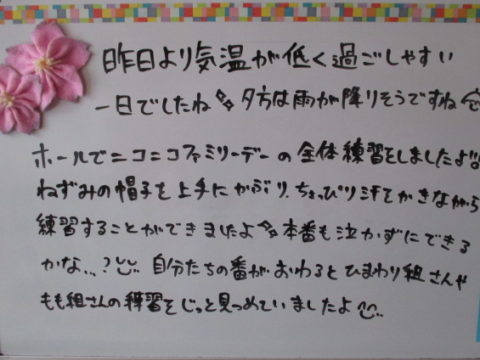 昨日より気温が低く過ごしやすい
一日でしたね 夕方は雨が降りそうですね
ホールでニコニコファミリーデーの全体練習をしましたよ!!
ねずみの帽子を上手にかぶり、ちょっぴり汗をかきながら
練習することができましたよ 本番も泣かずにできる
かな、、? 自分たちの番がおわるとひまわり組さんや
もも組さんの練習をじっと見つめていましたよ